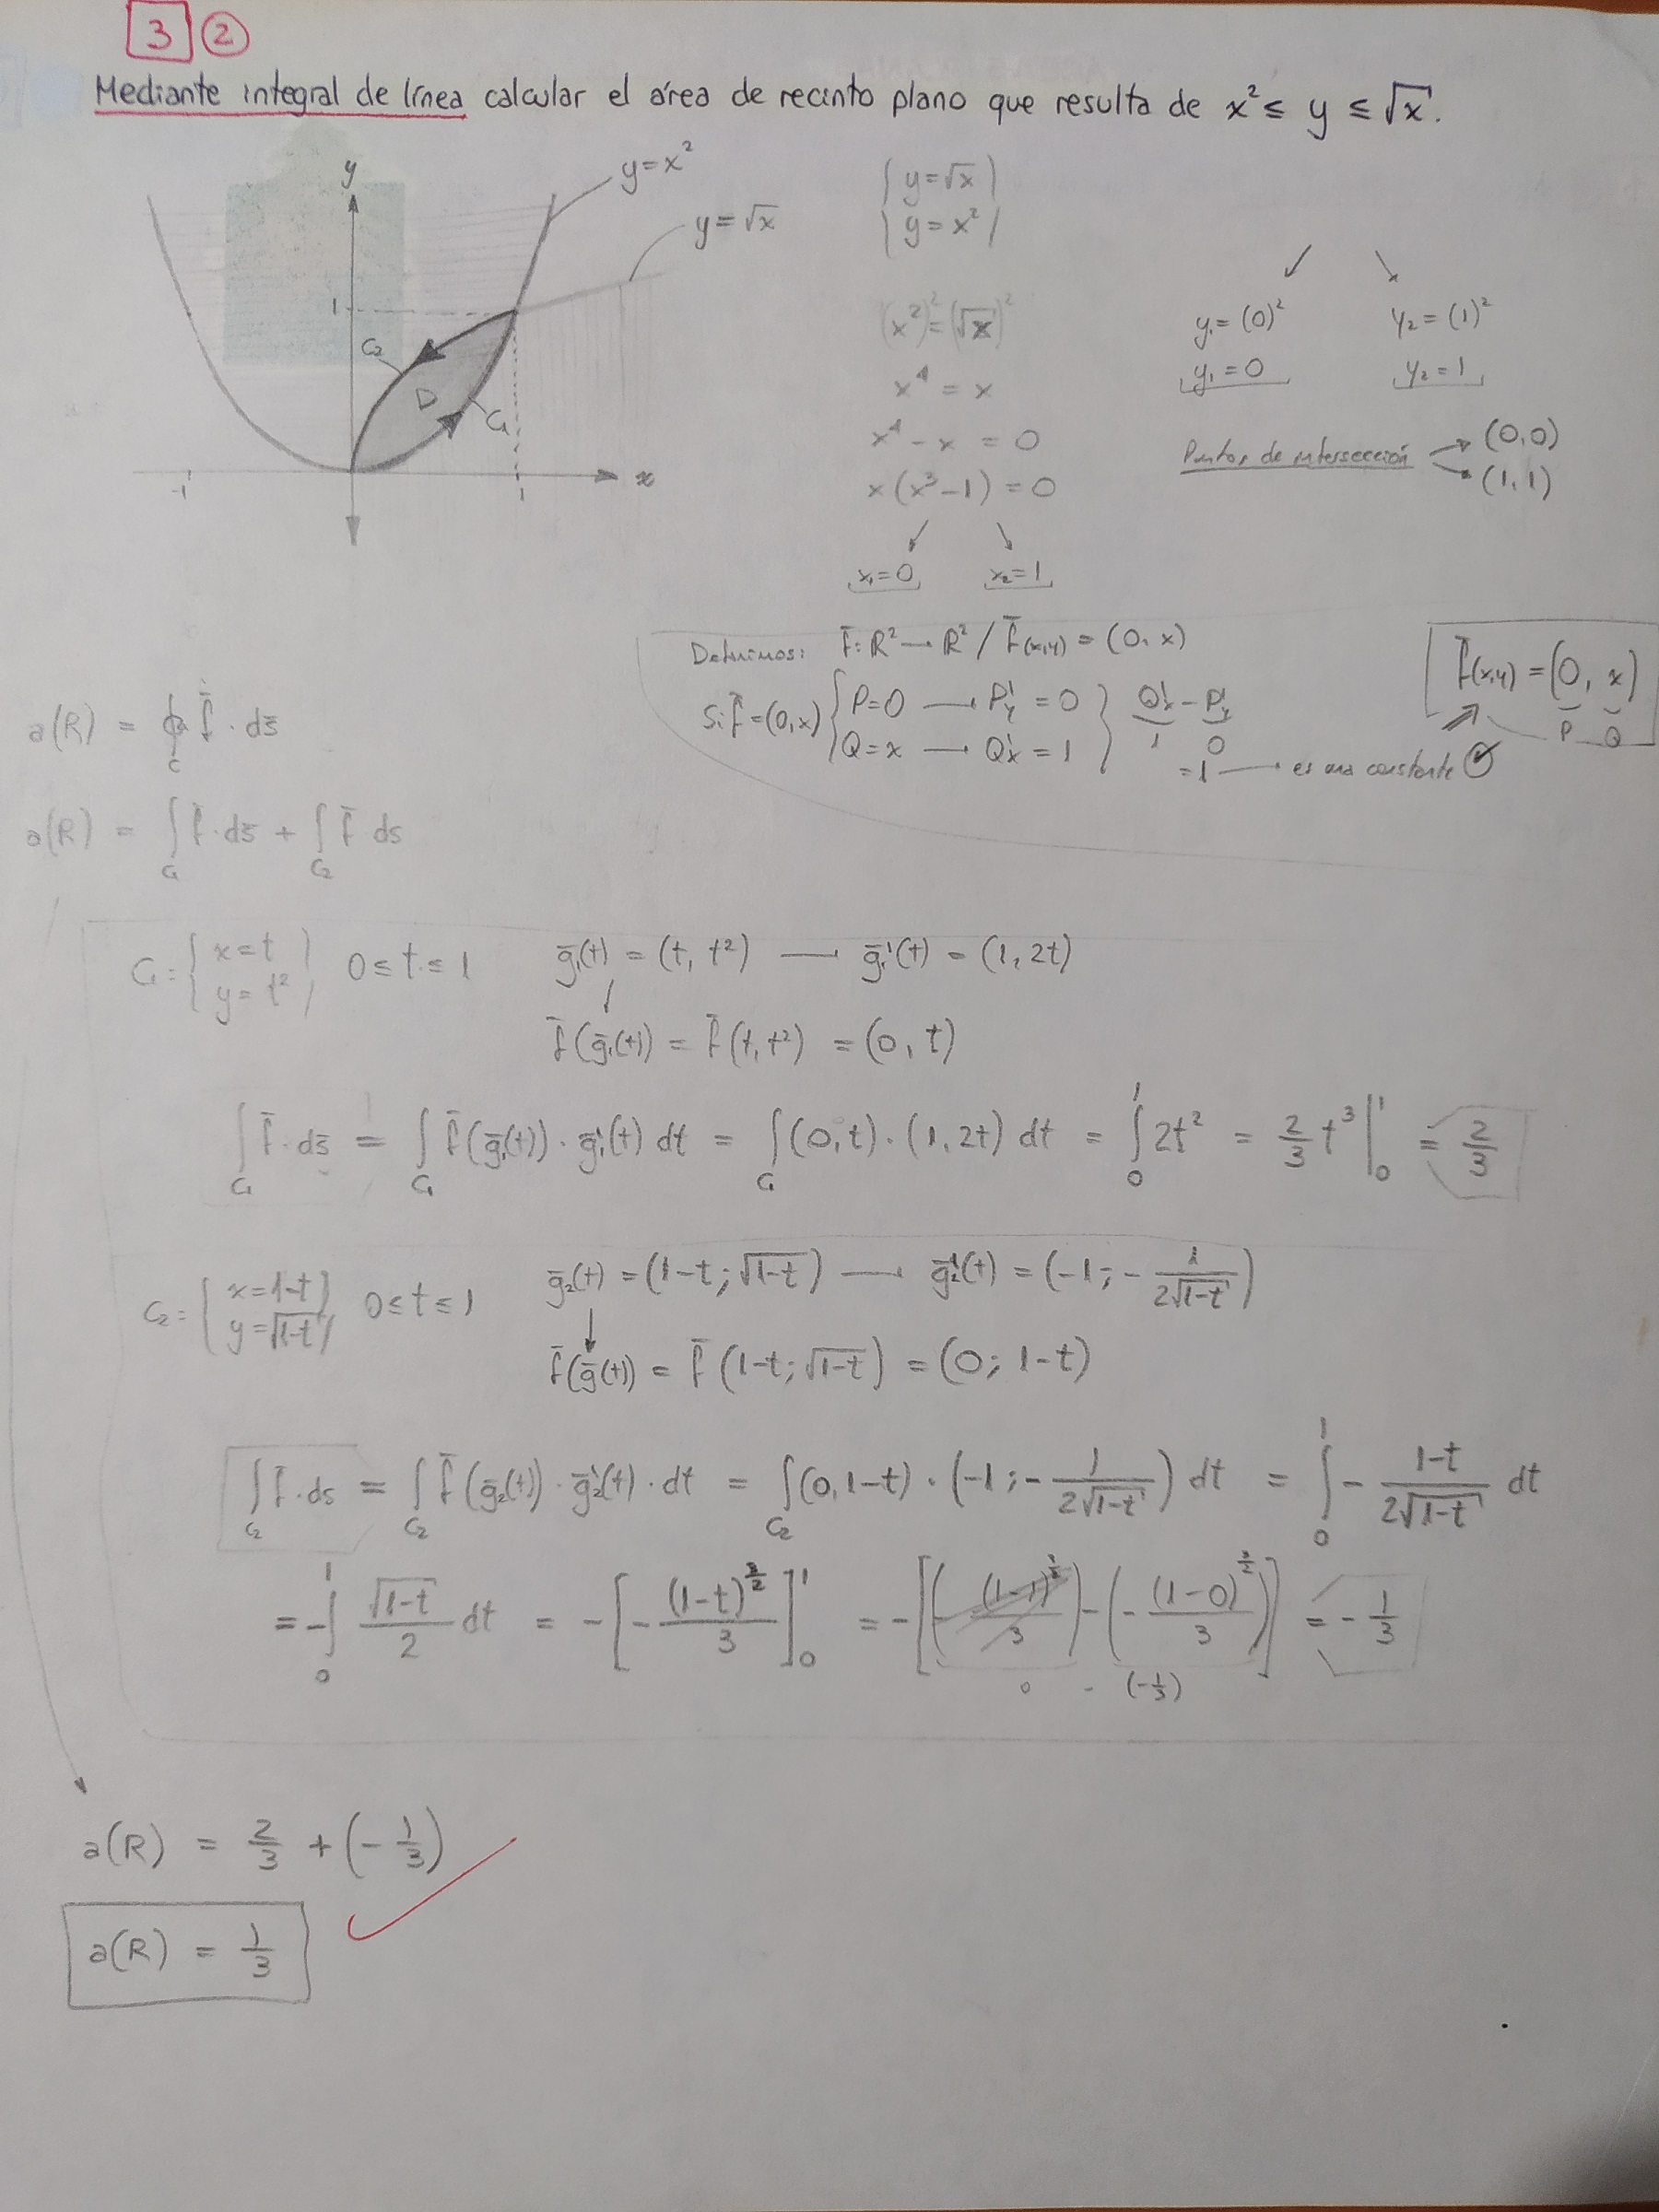 3 2
Mediante integral de línea calcular el área de recinto plano que resulta de x² ≤ y ≤ √x.
y
y = x²
y = √x
1
C2
D
C1
-1
1
x
{ y = √x
{ y = x²
(x²)² = (√x)²
x⁴ = x
x⁴ - x = 0
x(x³ - 1) = 0
x₁ = 0 x₂ = 1
y₁ = (0)² y₂ = (1)²
y₁ = 0 y₂ = 1
Puntos de intersección → (0,0)
→ (1,1)
Definimos: f̄: R² → R² / f̄(x,y) = (0, x)
Si f̄ = (0,x) { P = 0 → P'y = 0 } Q'x - P'y
{ Q = x → Q'x = 1 } 1 0
= 1 → es una constante ✓
f̄(x,y) = (0, x)
P Q
a(R) = ∮_C f̄ · ds̄
a(R) = ∫_C1 f̄ · ds̄ + ∫_C2 f̄ ds
C1 = { x = t
y = t² } 0 ≤ t ≤ 1
ḡ₁(t) = (t, t²) — ḡ₁'(t) = (1, 2t)
f̄(ḡ₁(t)) = f̄(t, t²) = (0, t)
∫_C1 f̄ · ds̄ = ∫_C1 f̄(ḡ₁(t)) · ḡ₁'(t) dt = ∫_C1 (0,t) · (1, 2t) dt = ∫₀¹ 2t² = 2/3 t³ |₀¹ = 2/3
C2 = { x = 1-t
y = √(1-t) } 0 ≤ t ≤ 1
ḡ₂(t) = (1-t; √(1-t)) — ḡ₂'(t) = (-1; - 1/(2√(1-t)))
f̄(ḡ(t)) = f̄(1-t; √(1-t)) = (0; 1-t)
∫_C2 f̄ · ds = ∫_C2 f̄(ḡ₂(t)) · ḡ₂'(t) · dt = ∫_C2 (0, 1-t) · (-1; - 1/(2√(1-t))) dt = ∫₀¹ - (1-t)/(2√(1-t)) dt
= -∫₀¹ √(1-t)/2 dt = -[- (1-t)^(3/2)/3]₀¹ = -[(- (1-1)^(3/2)/3) - (- (1-0)^(3/2)/3)] = - 1/3
0 - (-1/3)
a(R) = 2/3 + (- 1/3)
a(R) = 1/3